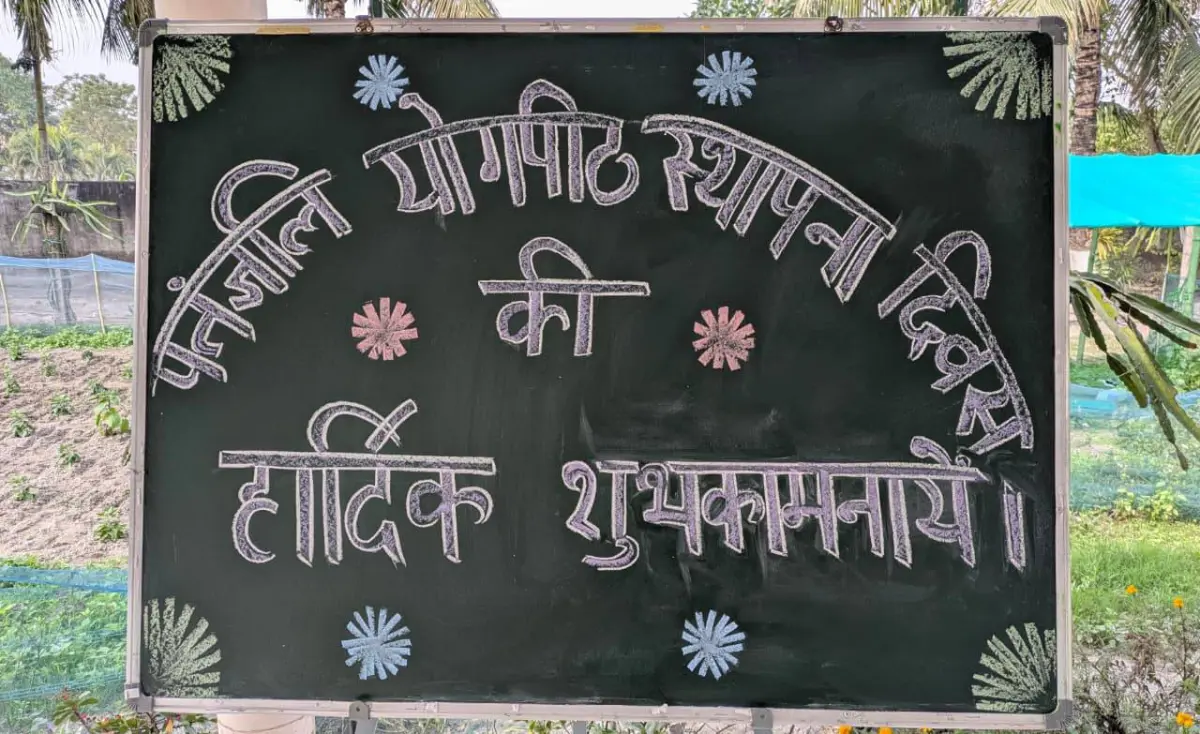 पतंजलि योगपीठ स्थापना दिवस
की
हार्दिक शुभकामनायें।